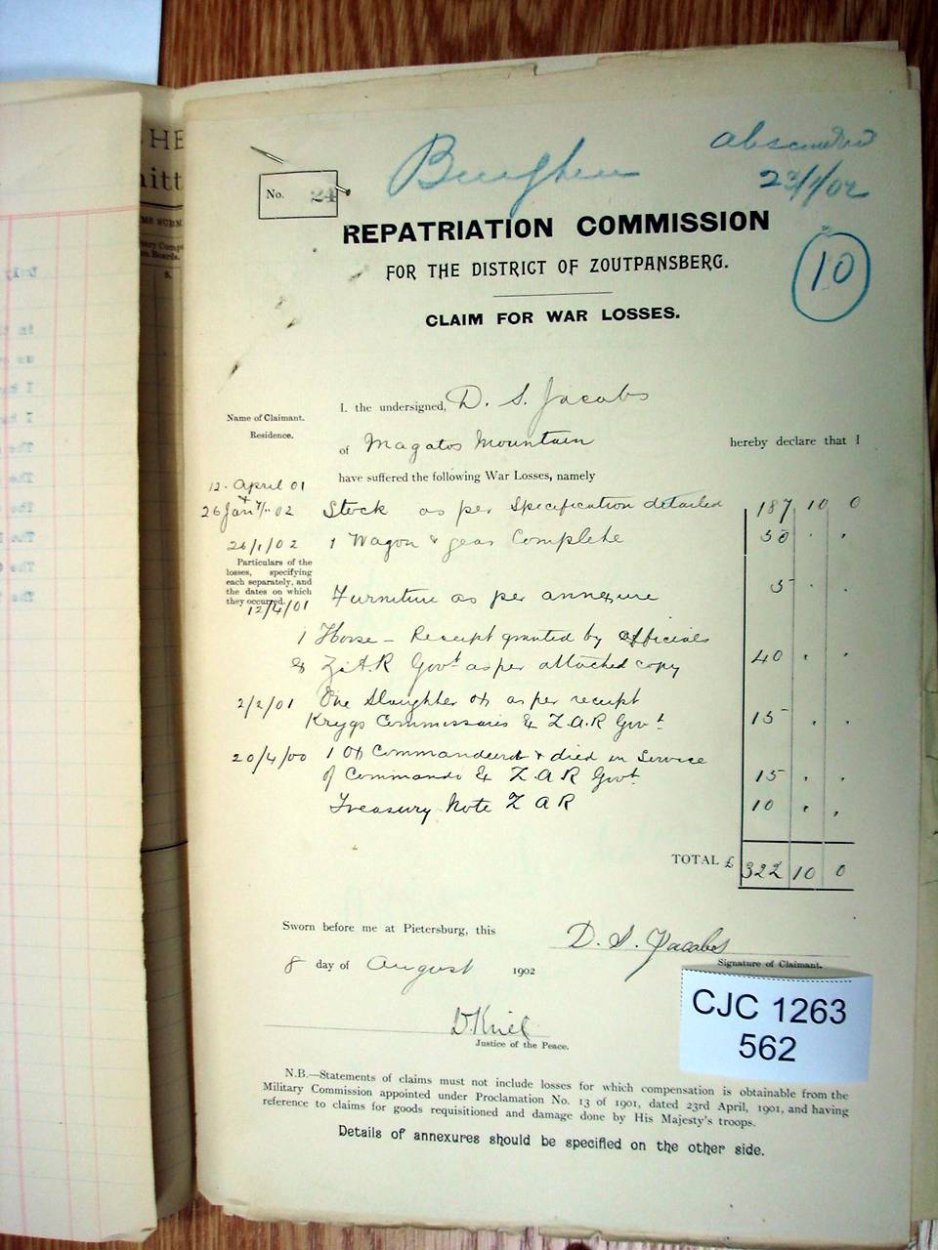 Burgher
23/1/02
No. 24
REPATRIATION COMMISSION
FOR THE DISTRICT OF ZOUTPANSBERG.
10
CLAIM FOR WAR LOSSES.
Name of Claimant.
I. the undersigned, D. S. Jacobs
Residence.
of Magatos Mountain hereby declare that I
have suffered the following War Losses, namely
12. April 01
26 Jany 02 Stock as per Specification detailed 187 10 0
26/1/02 1 Wagon & gear Complete 50 . .
Particulars of the
losses, specifying
each separately, and
the dates on which
they occurred.
12/4/01 Furniture as per annexure 5 . .
1 Horse - Receipt granted by officials
Z.A.R Govt as per attached copy 40 . .
2/2/01 One Slaughter ox as per receipt
Krygs Commissaris Z.A.R Govt 15 . .
20/4/00 1 Ox Commandeered & died in Service
of Commando Z A R Govt 15 . .
Treasury Note Z A R 10 . .
TOTAL £ 322 10 0
Sworn before me at Pietersburg, this
D. S. Jacobs
Signature of Claimant.
8 day of August 1902
D Kriel
Justice of the Peace.
CJC 1263
562
N.B.—Statements of claims must not include losses for which compensation is obtainable from the
Military Commission appointed under Proclamation No. 13 of 1901, dated 23rd April, 1901, and having
reference to claims for goods requisitioned and damage done by His Majesty's troops.
Details of annexures should be specified on the other side.